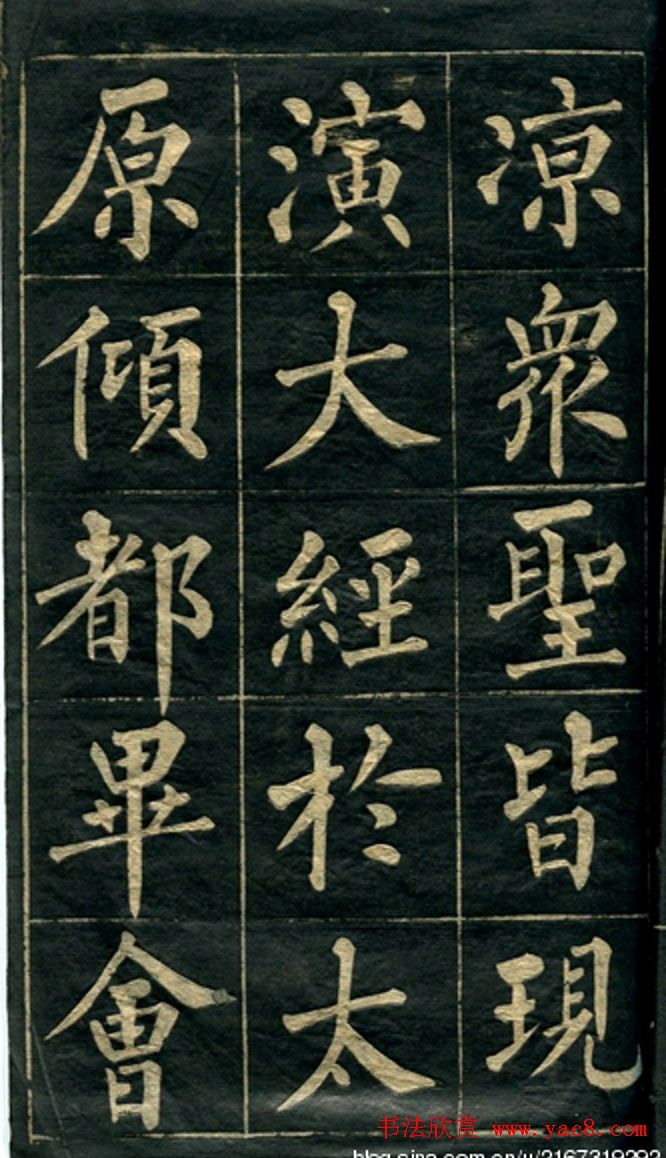 凉衆聖皆現
演大經於太
原傾都畢會
书法欣赏 www.yac8.com
blog.sina.com.cn/u/2167319292